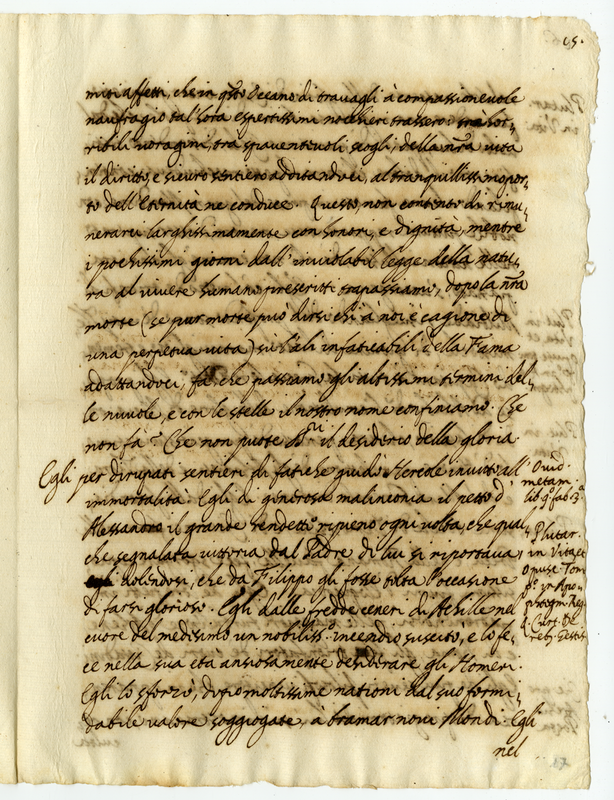 65.
miti affetti, che in qsto Oceano di travagli à compassionevole
naufragio tal'hora espertissimi nocchieri trassero: tra hor-
ribili voragini, tra spaventevoli scogli, della nra vita
il diritto, e sicuro sentiero additandoci, al tranquillissimo por-
to dell'Eternità ne conduce. Questo, non contento di rimu-
nerarci larghissimamente con honori, e dignità, mentre
i pochissimi giorni dall'inviolabil legge della natu-
ra al vivere humano prescritti trapassiamo, dopo la nra
morte (se pur morte può dirsi ch'à noi è cagione di
una perpetua vita) si l'ali infaticabili della Fama
adattandoci, fà, che passiamo gli altissimi termini del-
le nuvole, e con le stelle il nostro nome confiniamo. Che
non fà? Che non puote il desiderio della gloria.
Egli per dirupati sentieri di fatiche guidò Hercole invitto all'
immortalità. Egli di generosa malinconia il petto d'
Alessandro il grande rendette ripieno ogni volta, che qual-
che segnalata vittoria dal Padre di lui si riportava,
dolendosi, che da Filippo gli fosse tolta l'occasione
di farsi glorioso. Egli dalle fredde ceneri di Achille nel
cuore del medesimo un nobiliss.o incendio suscitò, e lo fe-
ce nella sua età ansiosamente desiderare gli Homeri.
Egli lo sforzò, dopo moltissime nationi dal suo formi-
dabile valore soggiogate, à bramar novi Mondi. Egli
nel
Ovid.
metam.
lib. 9. fab. 3.a
Plutar.
in Vita, et
Opusc. Tom.
p.o in Apo-
phtegm. Reg.
Q. Curt. De
reb. Gestis